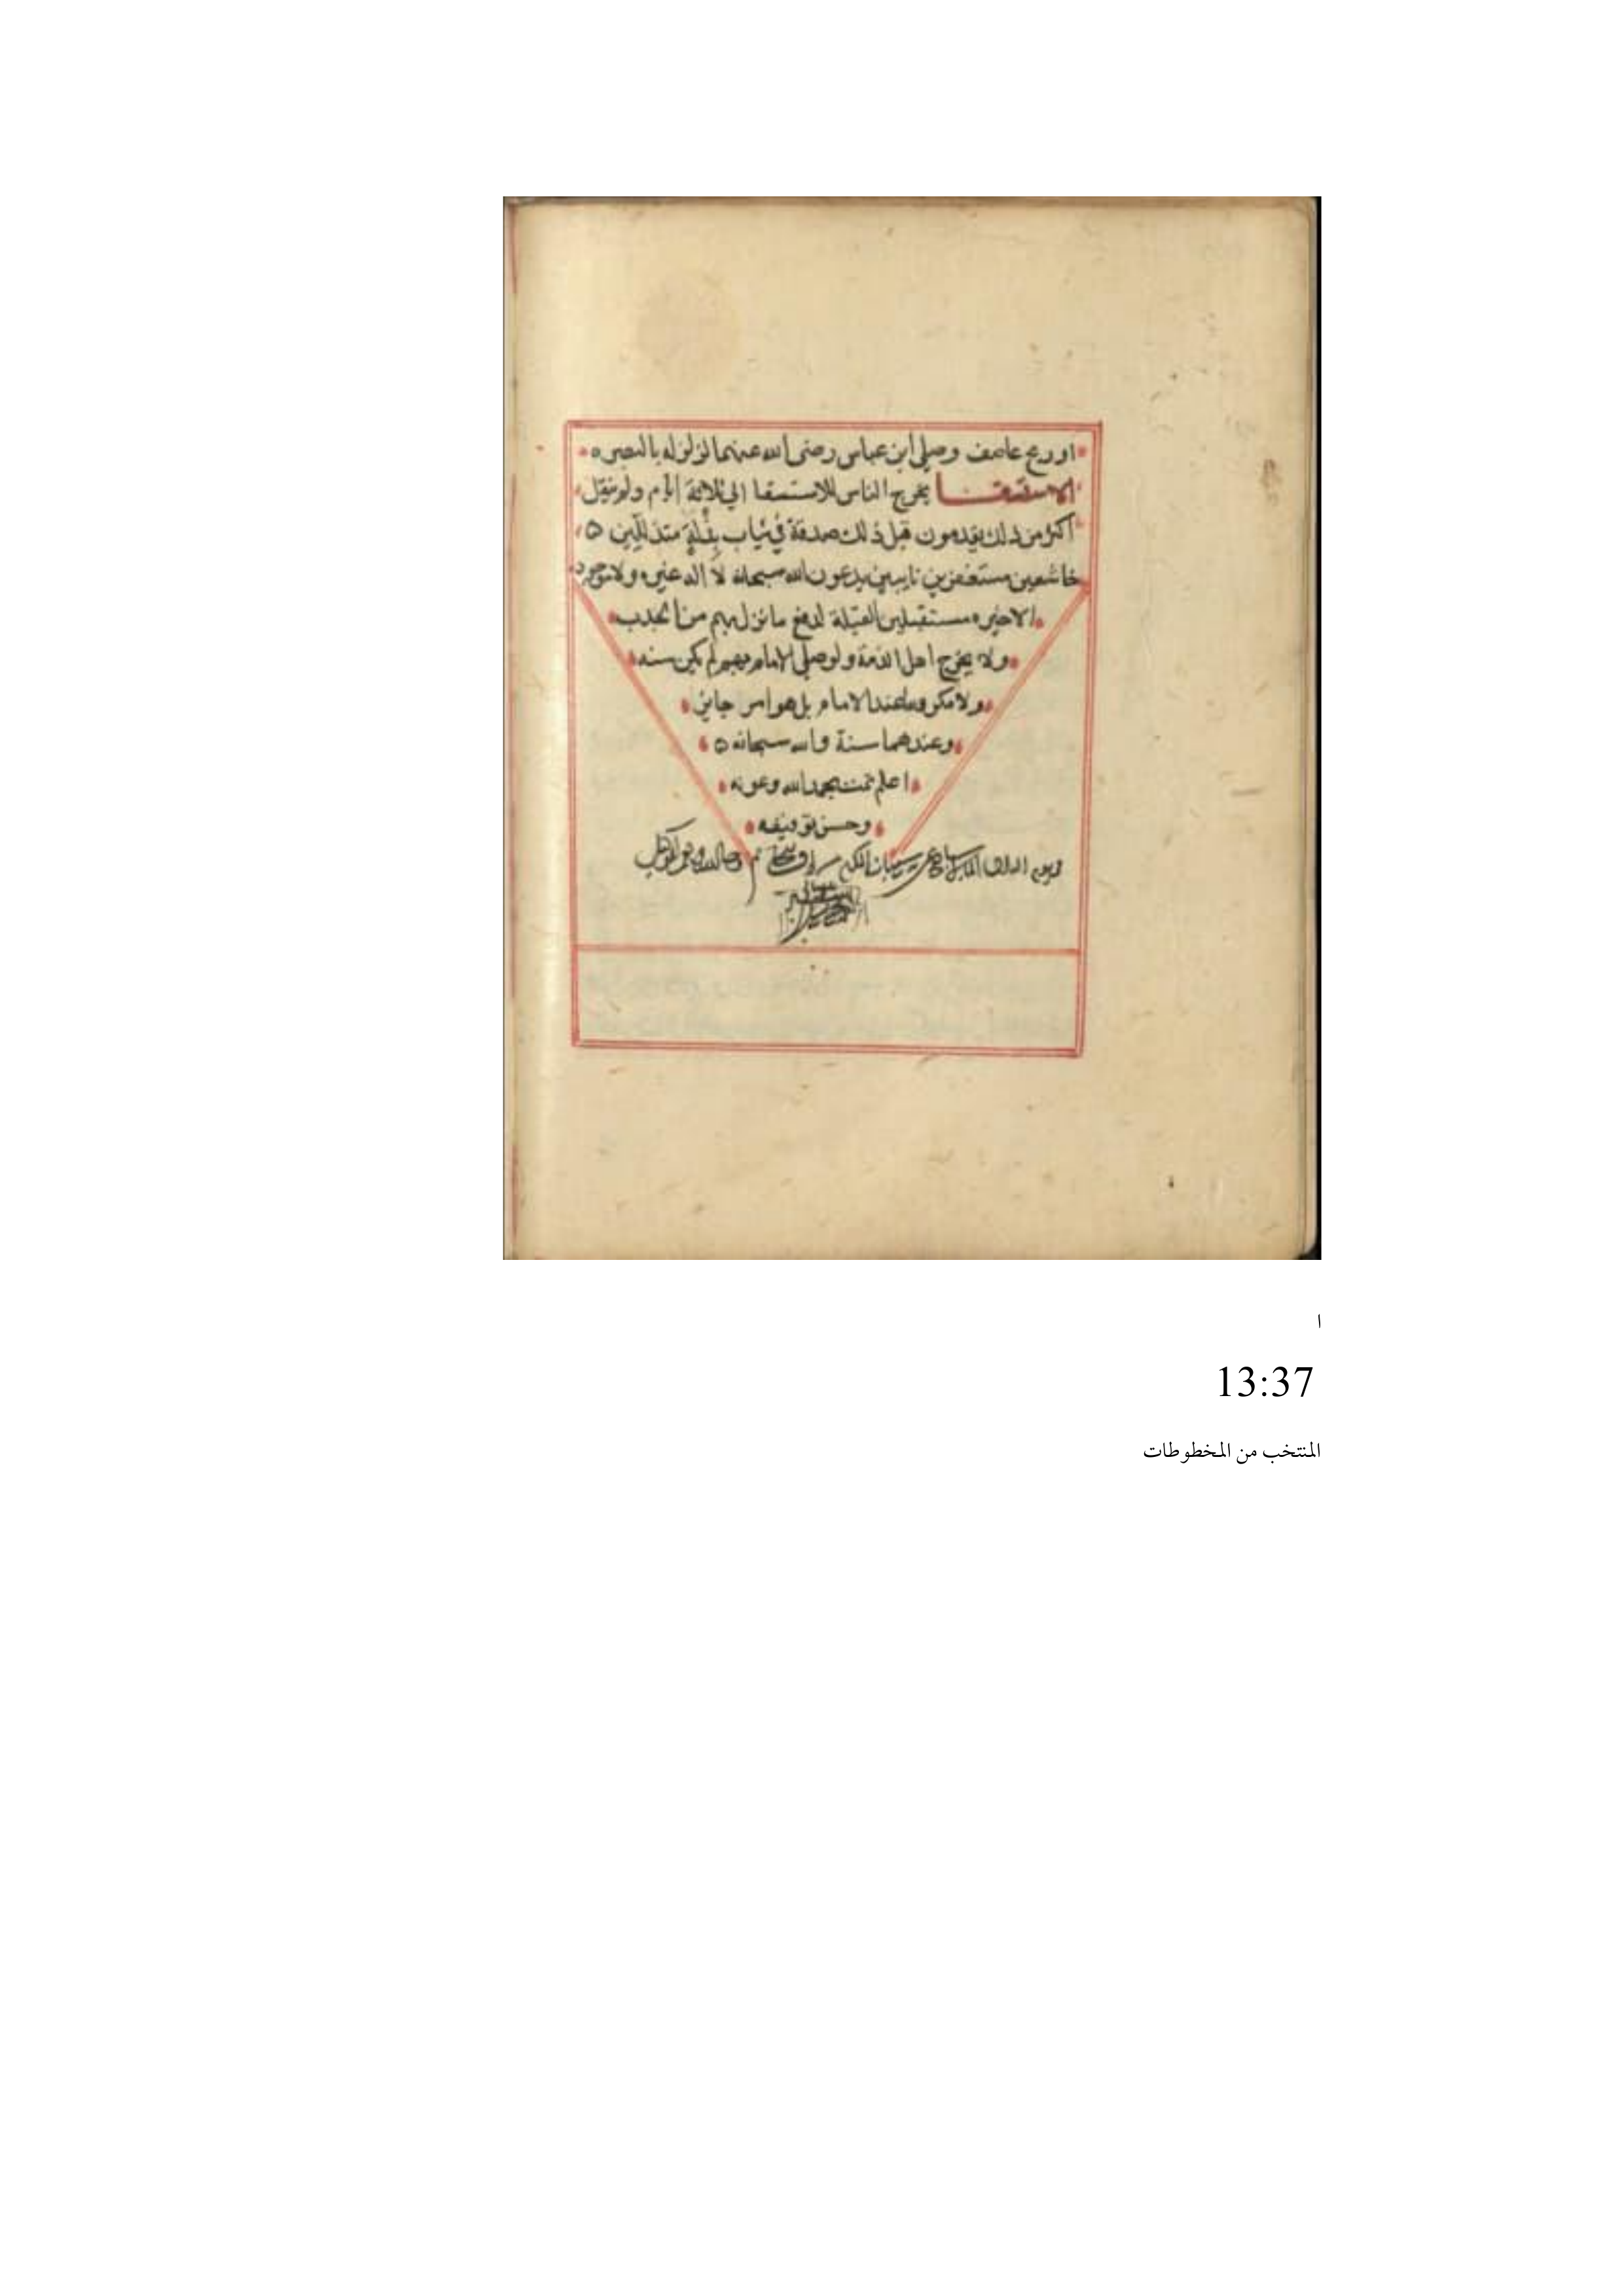 او ريح عاصف وصلى ابن عباس رضى الله عنهما لزلزلة بالبصره
الاستسقا يخرج الناس للاستسقا الي ثلاثة ايام ولم ينقل
اكثر من ذلك يقدمون قبل ذلك صدقة في ثياب بذلة متذللين
خاشعين مستغفرين تايبين يدعون الله سبحانه لا اله غيره ولا موجود
الا خيره مستقبلين القبلة لدفع ما نزل بهم من الجدب
ولا يخرج اهل الذمة ولو صلى الامام بهم لم يكن سنه
ولا مكروها عند الامام بل هو امر جايز
وعندهما سنة والله سبحانه
اعلم تمت بحمد الله وعونه
وحسن توفيقه
ا
13:37
المنتخب من المخطوطات